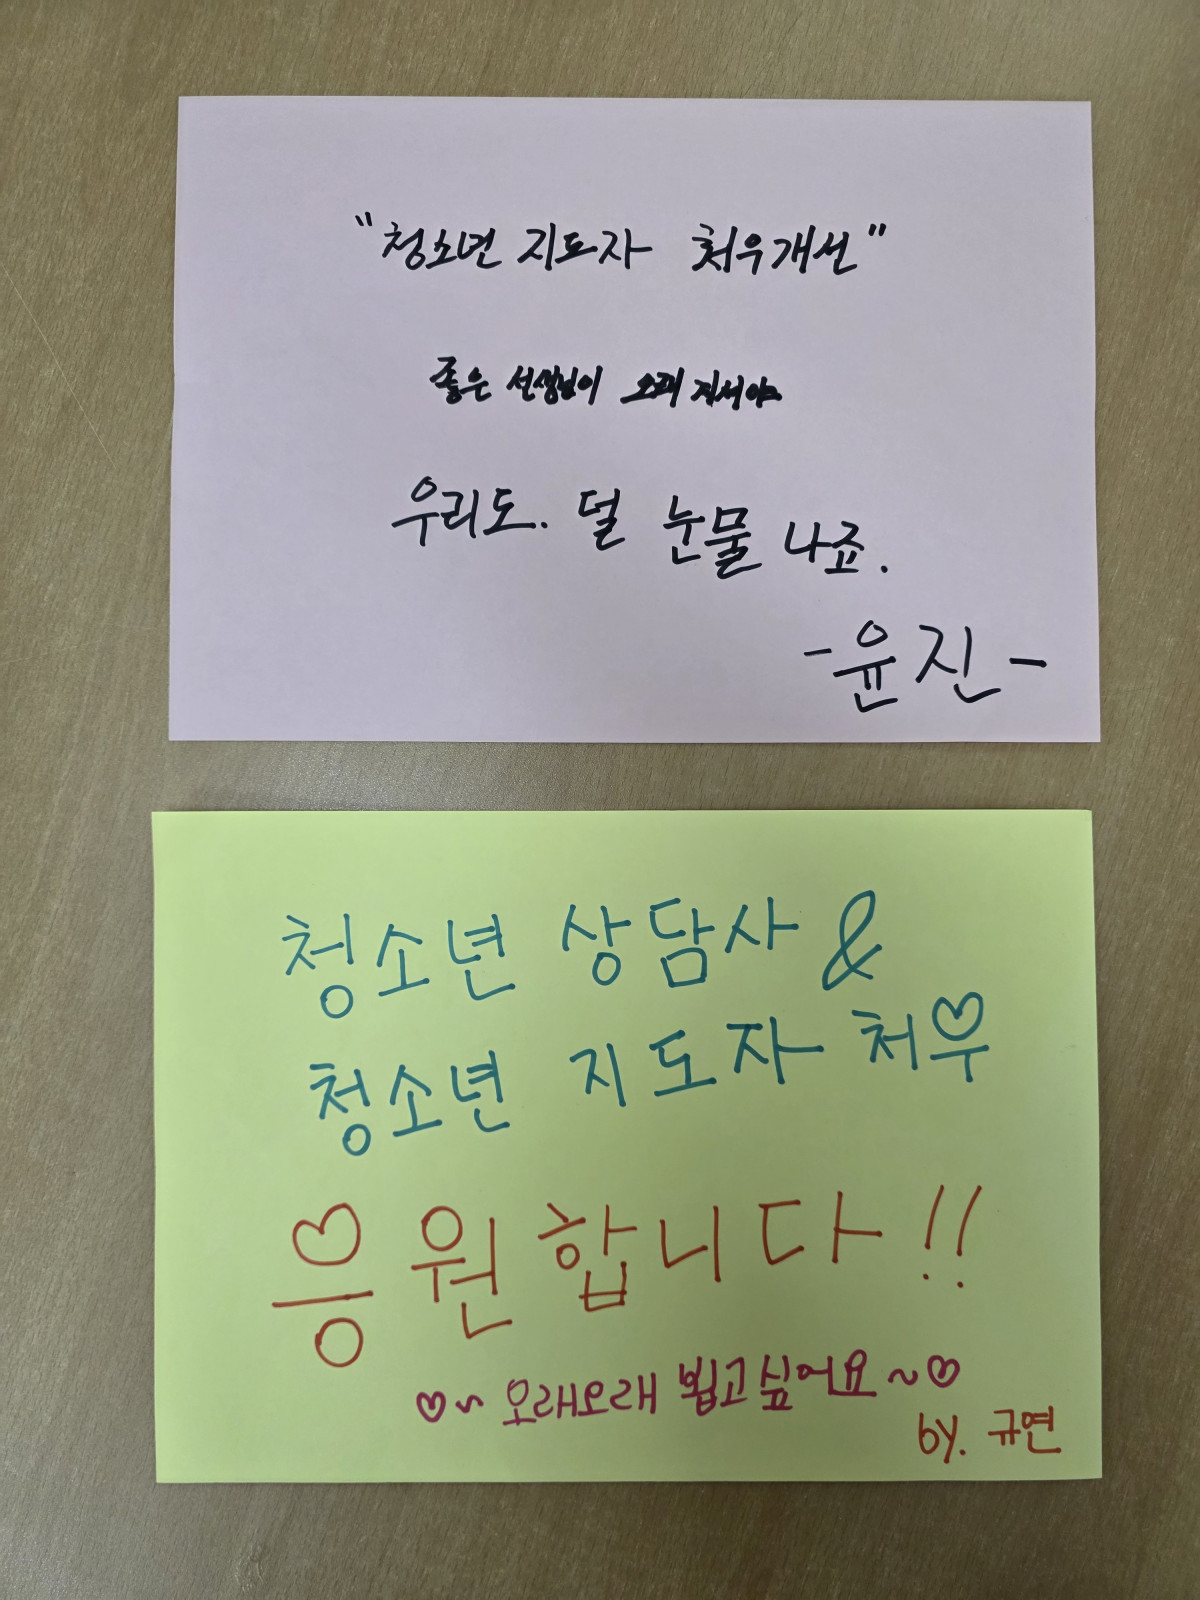 "청소년 지도자 처우개선"
좋은 선생님이 오래 계셔야
우리도. 덜 눈물 나죠.
-윤진-
청소년 상담사 &
청소년 지도자 처우
응원합니다!!
♡~ 오래오래 뵙고싶어요 ~♡
by. 규연